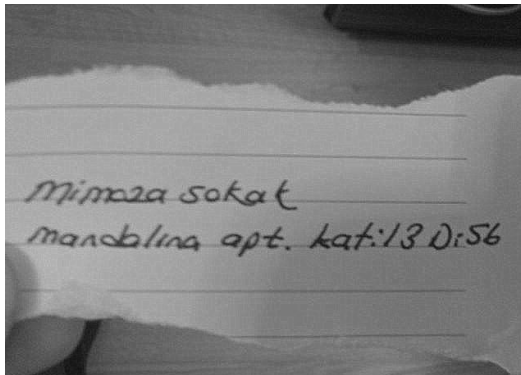 Mimoza sokak
mandalina apt. kat:13 D:56